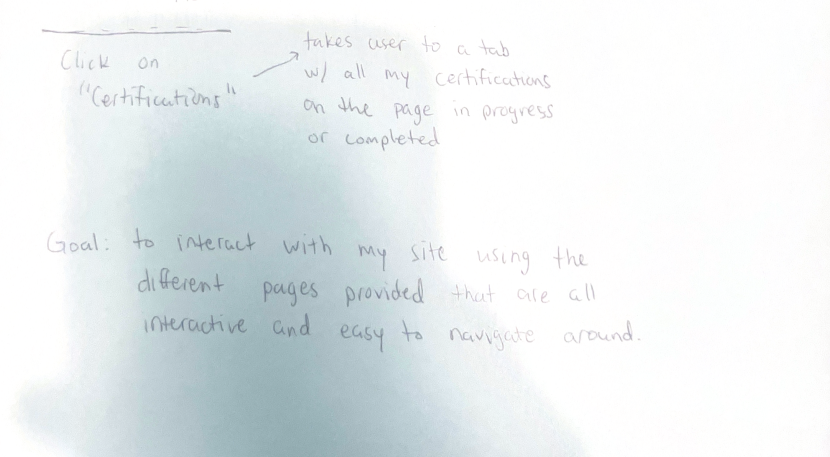 Click on
"Certifications"
takes user to a tab
w/ all my certifications
on the page in progress
or completed
Goal: to interact with my site using the
different pages provided that are all
interactive and easy to navigate around.